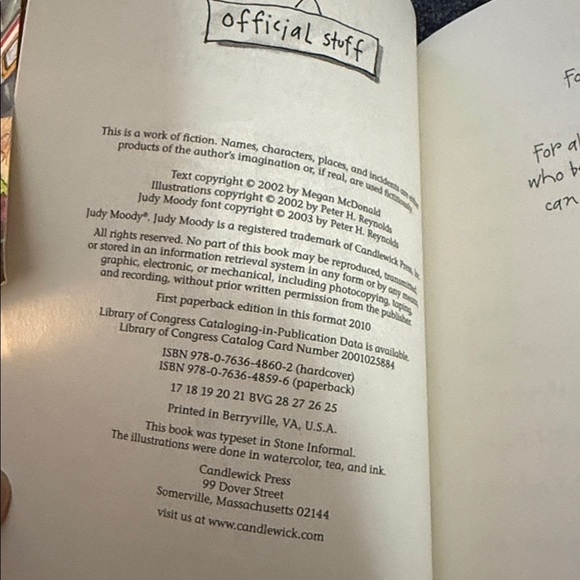 official stuff
This is a work of fiction. Names, characters, places, and incidents are either
products of the author's imagination or, if real, are used fictitiously.
Text copyright © 2002 by Megan McDonald
Illustrations copyright © 2002 by Peter H. Reynolds
Judy Moody font copyright © 2003 by Peter H. Reynolds
Judy Moody®. Judy Moody is a registered trademark of Candlewick Press, Inc.
All rights reserved. No part of this book may be reproduced, transmitted,
or stored in an information retrieval system in any form or by any means,
graphic, electronic, or mechanical, including photocopying, taping,
and recording, without prior written permission from the publisher.
First paperback edition in this format 2010
Library of Congress Cataloging-in-Publication Data is available.
Library of Congress Catalog Card Number 2001025884
ISBN 978-0-7636-4860-2 (hardcover)
ISBN 978-0-7636-4859-6 (paperback)
17 18 19 20 21 BVG 28 27 26 25
Printed in Berryville, VA, U.S.A.
This book was typeset in Stone Informal.
The illustrations were done in watercolor, tea, and ink.
Candlewick Press
99 Dover Street
Somerville, Massachusetts 02144
visit us at www.candlewick.com
For
who
can